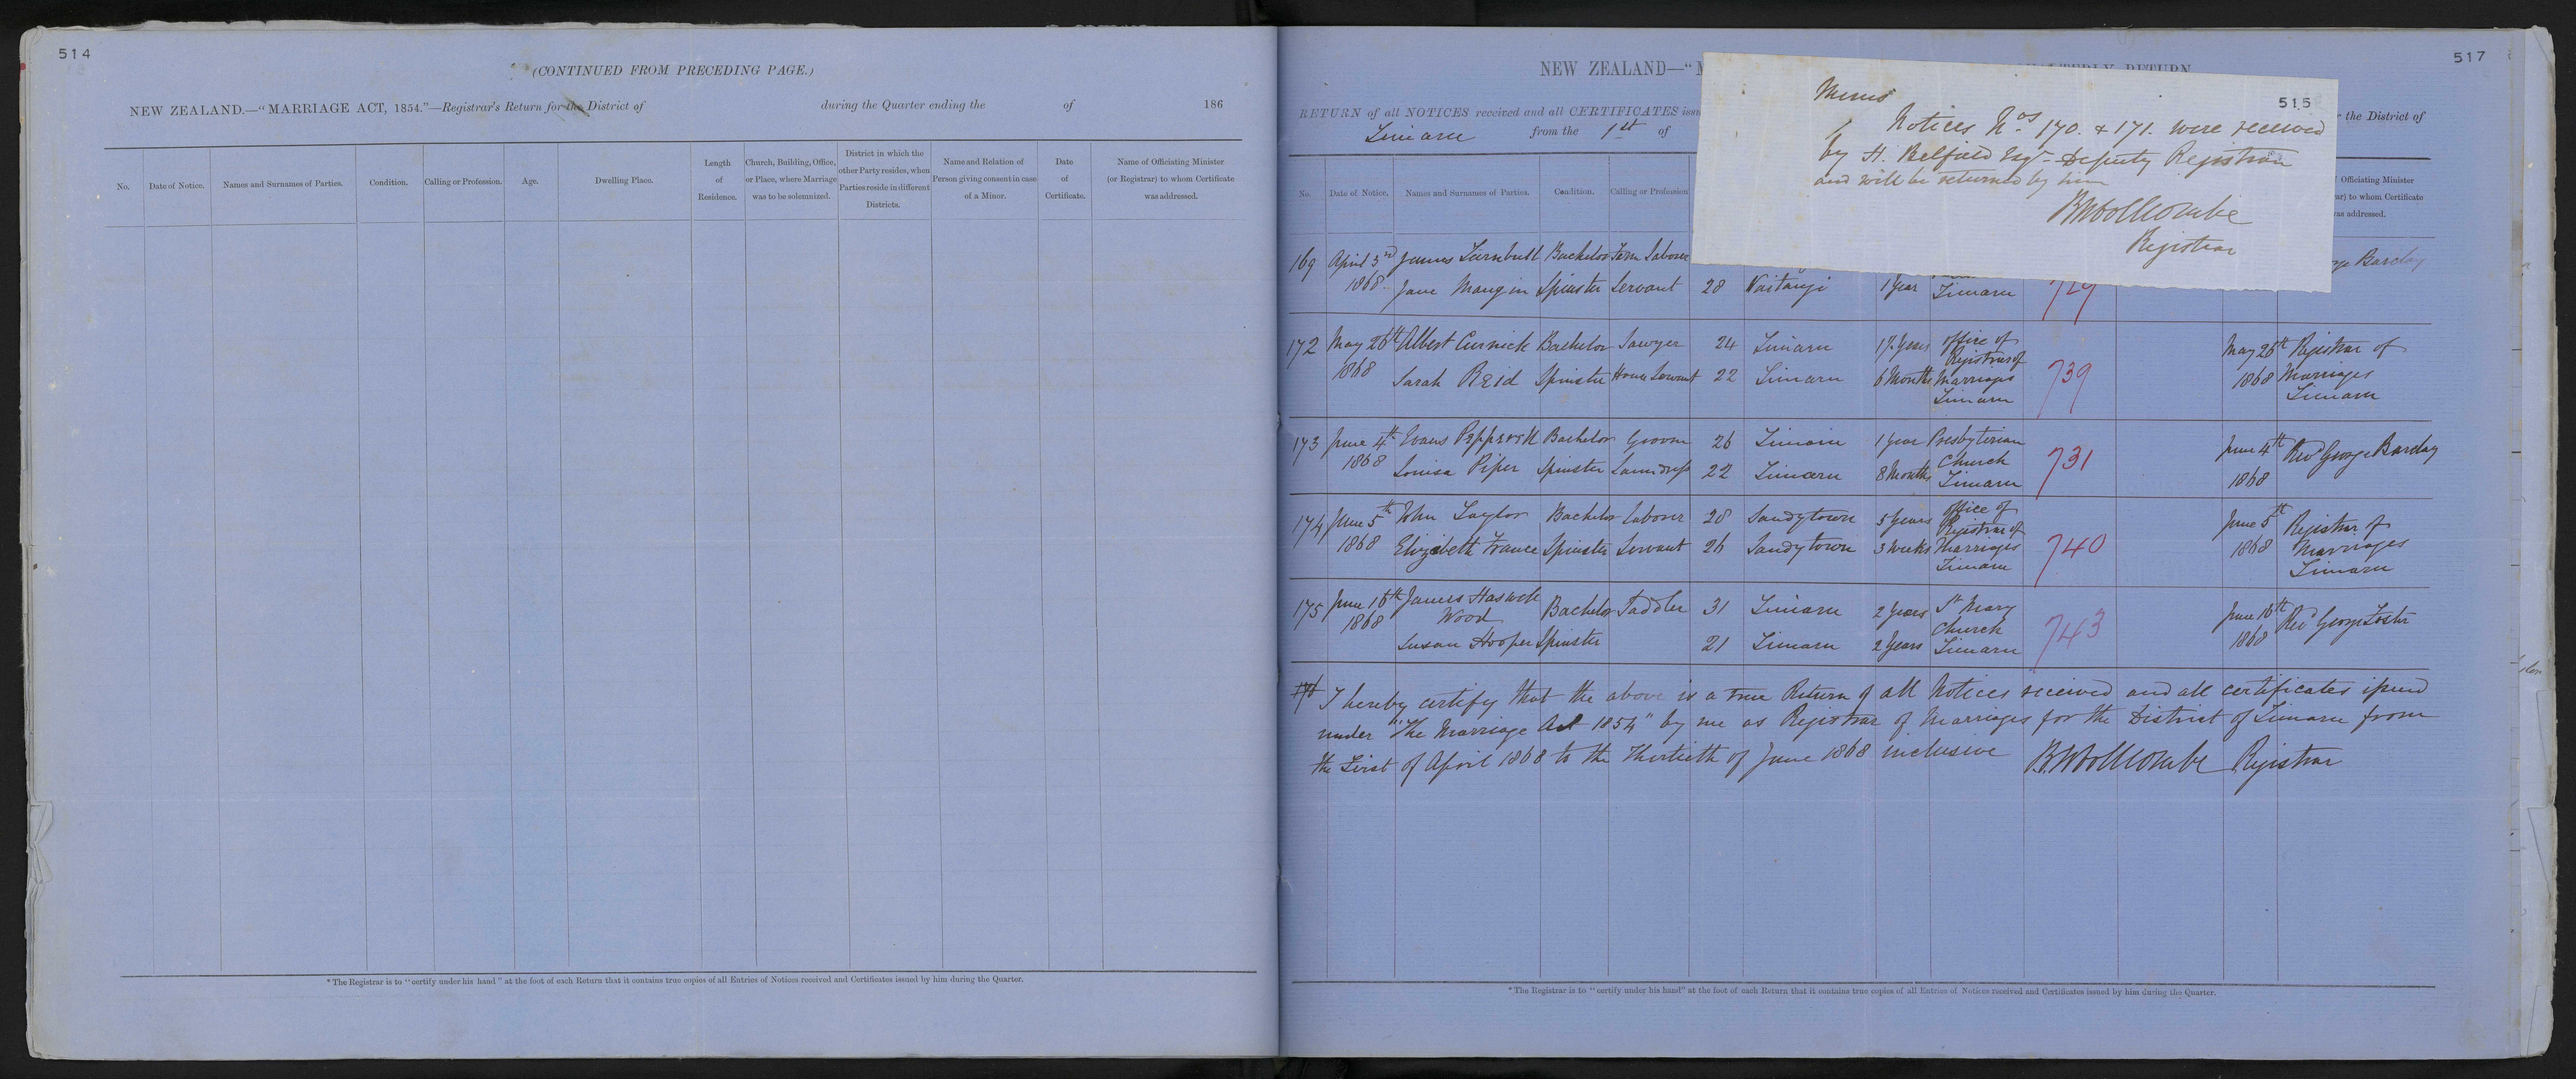 514
(CONTINUED FROM PRECEDING PAGE.)
NEW ZEALAND.—“MARRIAGE ACT, 1854.”—Registrar's Return for the District of during the Quarter ending the of 186
No. Date of Notice. Names and Surnames of Parties. Condition. Calling or Profession. Age. Dwelling Place. Length of Residence. Church, Building, Office, or Place, where Marriage was to be solemnized. District in which the other Party resides, when Parties reside in different Districts. Name and Relation of Person giving consent in case of a Minor. Date of Certificate. Name of Officiating Minister (or Registrar) to whom Certificate was addressed.
*The Registrar is to “certify under his hand” at the foot of each Return that it contains true copies of all Entries of Notices received and Certificates issued by him during the Quarter.
517
NEW ZEALAND—“M
RETURN of all NOTICES received and all CERTIFICATES issu
the District of
Timaru from the 1st of
515
Memo
Notices Nos 170. & 171. were received
by H. Belfield Esqr. Deputy Registrar
and will be returned by him
B Woollcombe
Registrar
No. Date of Notice. Names and Surnames of Parties. Condition. Calling or Profession
Officiating Minister
rar) to whom Certificate
was addressed.
169 April 3rd James Turnbull Bachelor Farm Laborer
ge Barclay
1868 Jane Mangin Spinster Servant 28 Waitangi 1 Year Timaru 729
172 May 26th Albert Curnick Bachelor Sawyer 24 Timaru 1½ Years Office of Registrar of May 26th Registrar of
1868 Sarah Reid Spinster House Servant 22 Timaru 6 Months Marriages Timaru 739 1868 Marriages Timaru
173 June 4th Evans Bachelor Groom 26 Timaru 1 year Presbyterian June 4th Revd George Barclay
1868 Louisa Piper Spinster Laundress 22 Timaru 8 Months Church Timaru 731 1868
174 June 5th John Taylor Bachelor Laborer 28 Sandytown 5 Years Office of Registrar of June 5th Registrar of
1868 Elizabeth France Spinster Servant 26 Sandytown 3 weeks Marriages Timaru 740 1868 Marriages Timaru
175 June 16th James Haswell Wood Bachelor Saddler 31 Timaru 2 years St Mary June 16th Revd George Foster
1868 Susan Hooper Spinster 21 Timaru 2 Years Church Timaru 743 1868
176 I hereby certify that the above is a true Return of all Notices received and all certificates issued
under "The Marriage Act 1854" by me as Registrar of Marriages for the District of Timaru from
the First of April 1868 to the Thirtieth of June 1868 inclusive B. Woollcombe Registrar
*The Registrar is to “certify under his hand” at the foot of each Return that it contains true copies of all Entries of Notices received and Certificates issued by him during the Quarter.